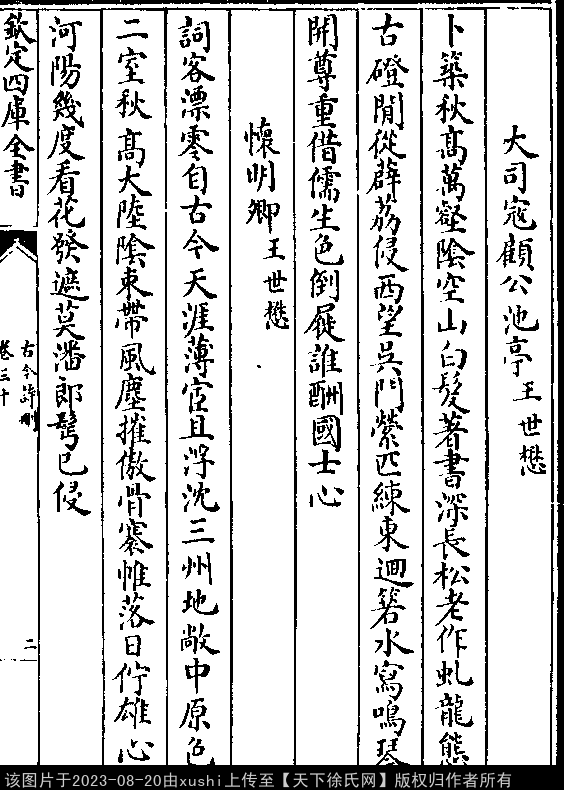 大司寇顧公池亭王世懋
卜築秋髙萬壑隂空山白髮著書深長松老作虬龍態
古磴閒從薜荔侵西望吳門縈匹練東迴箬水寫鳴琴
開尊重借儒生色倒屣誰酬國士心
懷明卿王世懋
詞客漂零自古今天涯薄宦且浮沈三州地敞中原色
二室秋髙大陸隂束帶風塵摧傲骨褰帷落日佇雄心
河陽幾度看花發遮莫潘郎鬢已侵
欽定四庫全書
古今詩刪
卷三十
二
该图片于2023-08-20由xushi上传至【天下徐氏网】版权归作者所有